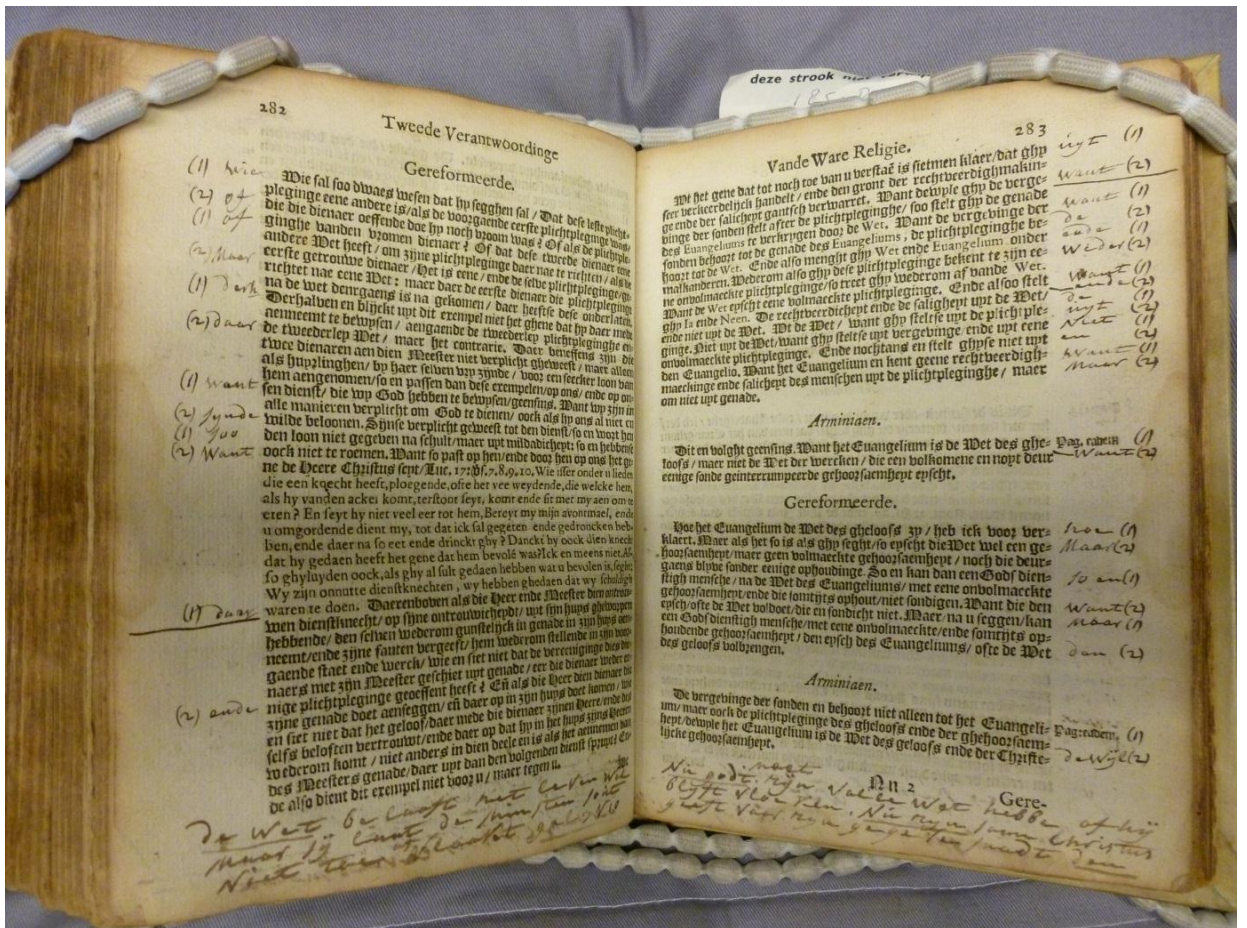 deze strook
282
Tweede Verantwoordinge
Gereformeerde.
Wie sal soo dwaes wesen dat hy segghen sal / Dat dese leste plicht-
pleginge eene andere is/als de voorgaende eerste plichtpleginge was/
die die dienaer oeffende doe hy noch vroom was? Of als de plichtple-
ginghe vanden vromen dienaer? Of dat dese tweede dienaer eene
andere Wet heeft / om zijne plichtpleginge daer nae te richten / als de
eerste getrouwe dienaer / Het is eene / ende de selve plichtpleginge/ge-
richtet nae eene Wet: maer daer de eerste dienaer die plichtpleginge
na de wet deurgaens is na gekomen / daer heeftse dese onderlaten.
Derhalven en blijckt uyt dit exempel niet het ghene dat hy daer mede
aenneemt te bewysen / aengaende de tweederley plichtpleginghe en-
de tweederley Wet / maer het contrarie. Daer beneffens zijn die
twee dienaren aen dien Meester niet verplicht gheweest / maer alleen
als huyrlinghen / by haer selven vry zijnde / voor een seecker loon van
hem aengenomen/so en passen dan dese exempelen/op ons/ ende op on-
sen dienst/ die wy God hebben te bewysen/geensins. Want wy zijn in
alle manieren verplicht om God te dienen / oock als hy ons al niet en
wilde beloonen. Sijnse verplicht geweest tot den dienst/so en wort hen
den loon niet gegeven na schult/maer uyt mildadicheyt: so en hebbense
oock niet te roemen. Want so past op hen/ende door hen op ons het ge-
ne de Heere Christus seyt/Luc. 17: vs. 7, 8, 9, 10. Wie isser onder u lieden
die een knecht heeft, ploegende, ofte het vee weydende, die welcke hem,
als hy vanden acker komt, terstont seyt, komt ende sit met my aen om te
eten? En seyt hy niet veel eer tot hem, Bereyt my mijn avontmael, ende
u omgordende dient my, tot dat ick sal gegeten ende gedroncken heb-
ben, ende daer na so eet ende drinckt ghy? Danckt hy oock dien knecht
dat hy gedaen heeft het gene dat hem bevolē was? Ick en meens niet. Al-
so ghyluyden oock, als ghy al sult gedaen hebben wat u bevolen is, seght:
Wy zijn onnutte dienstknechten, wy hebben ghedaen dat wy schuldigh
waren te doen. Daerenboven als die Heer ende Meester dien ontrou-
wen dienstknecht / op sijne ontrouwicheydt / uyt sijn huys gheworpen
hebbende / den selven wederom gunstelijck in genade in zijn huys aen-
neemt/ende zijne fauten vergeeft/ hem wederom stellende in zijn voor-
gaende staet ende werck / wie en siet niet dat de vereeniginge dies die-
naers met zijn Meester geschiet uyt genade / eer die dienaer weder ee-
nige plichtpleginge geoeffent heeft? Eñ als die Heer dien dienaer die
zijne genade doet aenseggen / eñ daer op in zijn huys doet komen / wie
en siet niet dat het geloof/ daer mede die dienaer zijnen Heere/ende des
selfs beloften vertrouwt/ende daer op dat hy in het huys zijns Heeren
wederom komt / niet anders in dien deele en is als het aennemen van
des Meesters genade/ daer uyt dan den volgenden dienst spruyt? En-
de also dient dit exempel niet voor u / maer tegen u.
(1) wie
(2) of
(1) of
(2) Maar
(1) derh
(2) daar
(1) want
(2) synde
(1) soo
(2) Want
(1) daar
(2) ende
283
Vande Ware Religie.
Wt het gene dat tot noch toe van u verstaē is sietmen klaer/dat ghy
seer verkeerdelijck handelt / ende den gront der rechtveerdighmakin-
ge ende der salicheyt gantsch verwarret. Want dewyle ghy de verge-
vinge der sonden stelt after de plichtpleginghe / soo stelt ghy de genade
des Euangeliums te verkrygen door de Wet. Want de vergevinge der
sonden behoort tot de genade des Euangeliums, de plichtpleginghe be-
hoort tot de Wet. Ende also menght ghy Wet ende Euangelium onder
malkanderen. Wederom also ghy dese plichtpleginge bekent te zijn ee-
ne onvolmaeckte plichtpleginge/so treet ghy wederom af vande Wet.
Want de Wet eyscht eene volmaeckte plichtpleginge. Ende alsoo stelt
ghy Ia ende Neen. De rechtveerdicheyt ende de saligheyt uyt de Wet/
ende niet uyt de Wet. Wt de Wet / want ghy steltse uyt de plichtple-
ginge. Niet uyt de Wet/want ghy steltse uyt vergevinge/ende uyt eene
onvolmaeckte plichtpleginge. Ende nochtans en stelt ghyse niet uyt
den Euangelio. Want het Euangelium en kent geene rechtveerdigh-
maeckinge ende salicheyt des menschen uyt de plichtpleginghe / maer
om niet uyt genade.
Arminiaen.
Dit en volght geensins. Want het Euangelium is de Wet des ghe-
loofs / maer niet de Wet der wercken / die een volkomene en noyt deur
eenige sonde geinterrumpeerde gehoorsaemheyt eyscht.
Pag. eadem
Gereformeerde.
Hoe het Euangelium de Wet des gheloofs zy / heb ick voor ver-
klaert. Maer als het so is als ghy seght/so eyscht die Wet wel een ge-
hoorsaemheyt/maer geen volmaeckte gehoorsaemheyt / noch die deur-
gaens blyve sonder eenige ophoudinge. So en kan dan een Gods dien-
stigh mensche / na de Wet des Euangeliums / met eene onvolmaeckte
gehoorsaemheyt/ende die somtyts ophout/niet sondigen. Want die den
eysch/ofte de Wet voldoet/die en sondicht niet. Maer/na u seggen/kan
een Gods dienstigh mensche/met eene onvolmaeckte/ende somtyts op-
houdende gehoorsaemheyt / den eysch des Euangeliums / ofte de Wet
des geloofs volbrengen.
Arminiaen.
De vergevinge der sonden en behoort niet alleen tot het Euangeli-
um/ maer oock de plichtpleginge des gheloofs ende der ghehoorsaem-
heyt/dewyle het Euangelium is de Wet des geloofs ende der Christe-
lijcke gehoorsaemheyt.
Pag. eadem.
Nn 2
Gere-
uyt (1)
want (2)
want (1)
de (2)
ende (1)
weder (2)
want (1)
ende (2)
de (1)
uyt (2)
Niet (1)
en (2)
want (1)
Maar (2)
(1)
Want (2)
hoe (1)
Maar (2)
so en (1)
Want (2)
Maar (1)
dan (2)
(1)
dewijl (2)